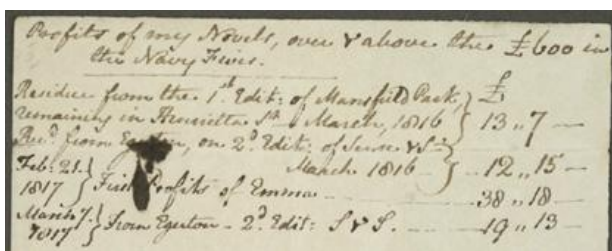 Profits of my Novels, over & above the £600 in
the Navy Fives.
Residue from the 1st. Edit: of Mansfield Park, } £
remaining in Henrietta St. March, 1816 } 13 ,, 7 —
Recd. from Egerton, on 2d. Edit: of Sense & S — }
March 1816 — } .. 12 ,, 15 —
Feb: 21. } First Profits of Emma — .. 38 ,, 18 —
1817 }
March 7. } From Egerton — 2d. Edit: S & S. — .. 19 ,, 13 —
1817 }